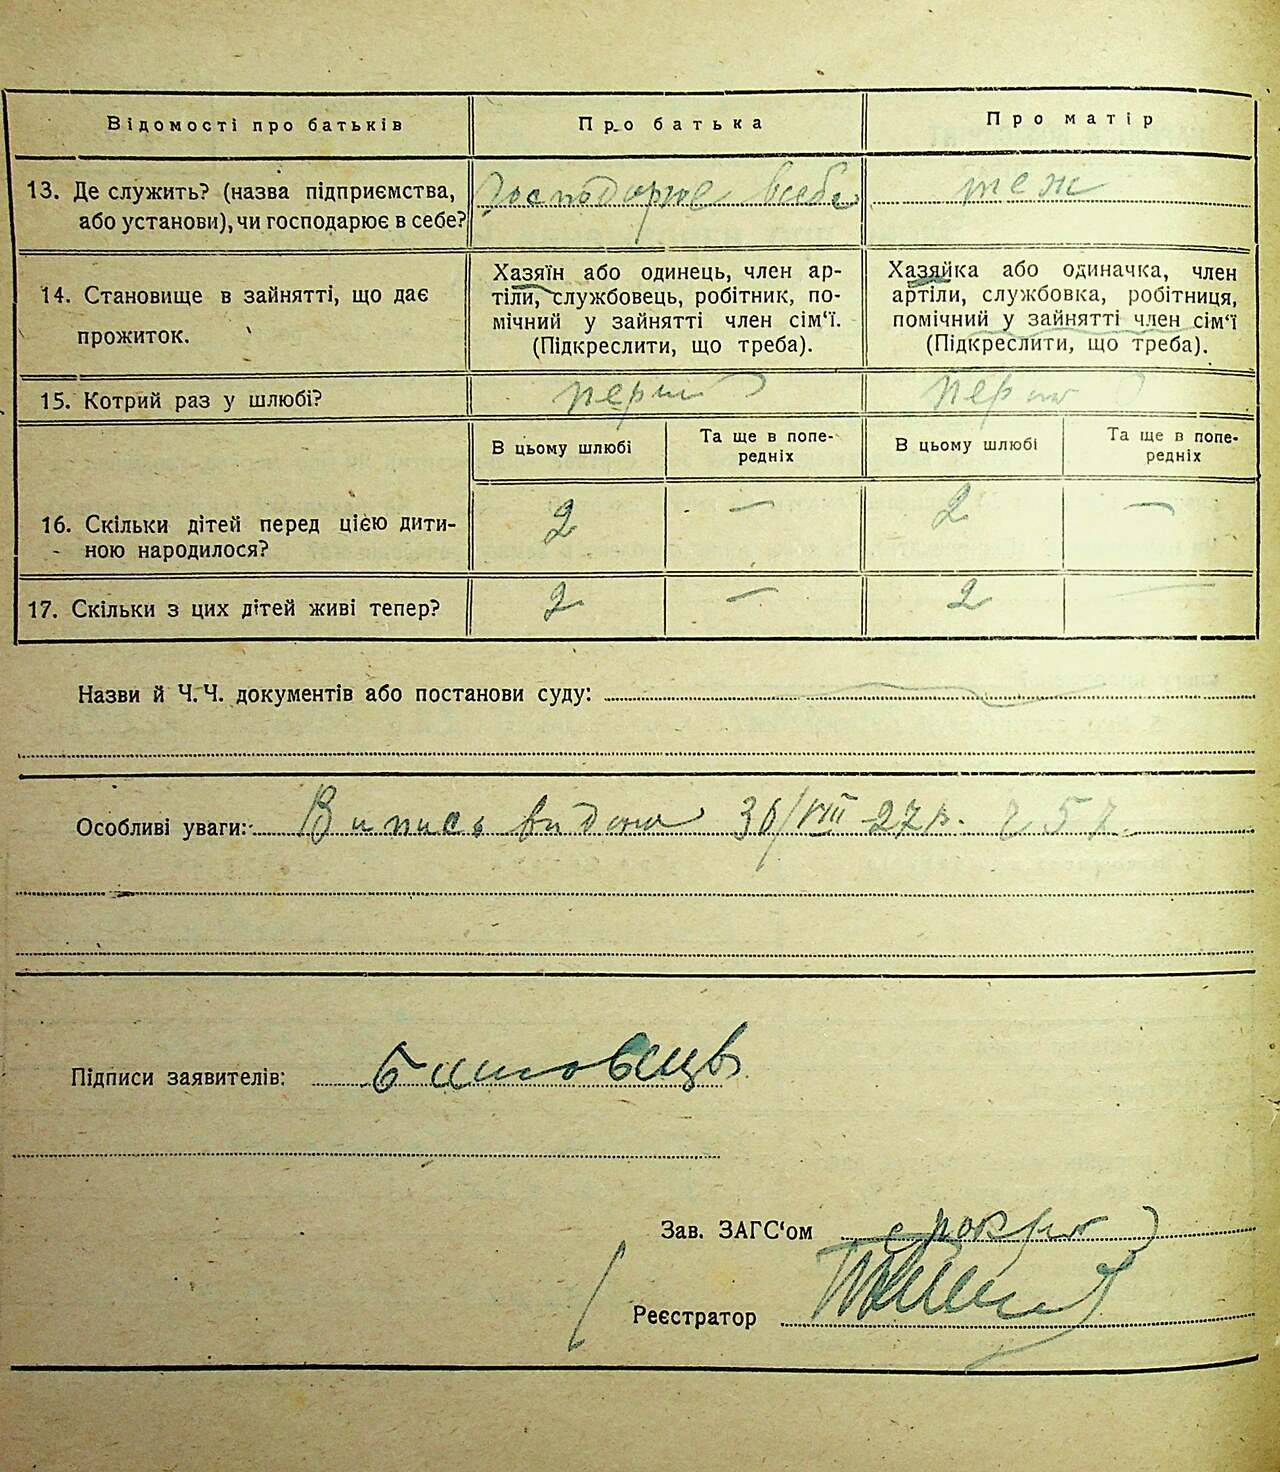 Відомості про батьків
Про батька
Про матір
13. Де служить? (назва підприємства,
або установи), чи господарює в себе?
Господарює в себе
теж
14. Становище в зайнятті, що дає
прожиток.
Хазяїн або одинець, член ар-
тіли, службовець, робітник, по-
мічний у зайнятті член сім‘ї.
(Підкреслити, що треба).
Хазяйка або одиначка, член
артіли, службовка, робітниця,
помічний у зайнятті член сім‘ї
(Підкреслити, що треба).
15. Котрий раз у шлюбі?
перший
В цьому шлюбі
Та ще в попе-
редніх
В цьому шлюбі
Та ще в попе-
редніх
16. Скільки дітей перед цією дити-
ною народилося?
2
—
2
—
17. Скільки з цих дітей живі тепер?
2
—
2
—
Назви й Ч.Ч. документів або постанови суду:
Особливі уваги: Випись видана 30/VIII 27 р. ч 57
Підписи заявителів:
Зав. ЗАГС‘ом
Реєстратор